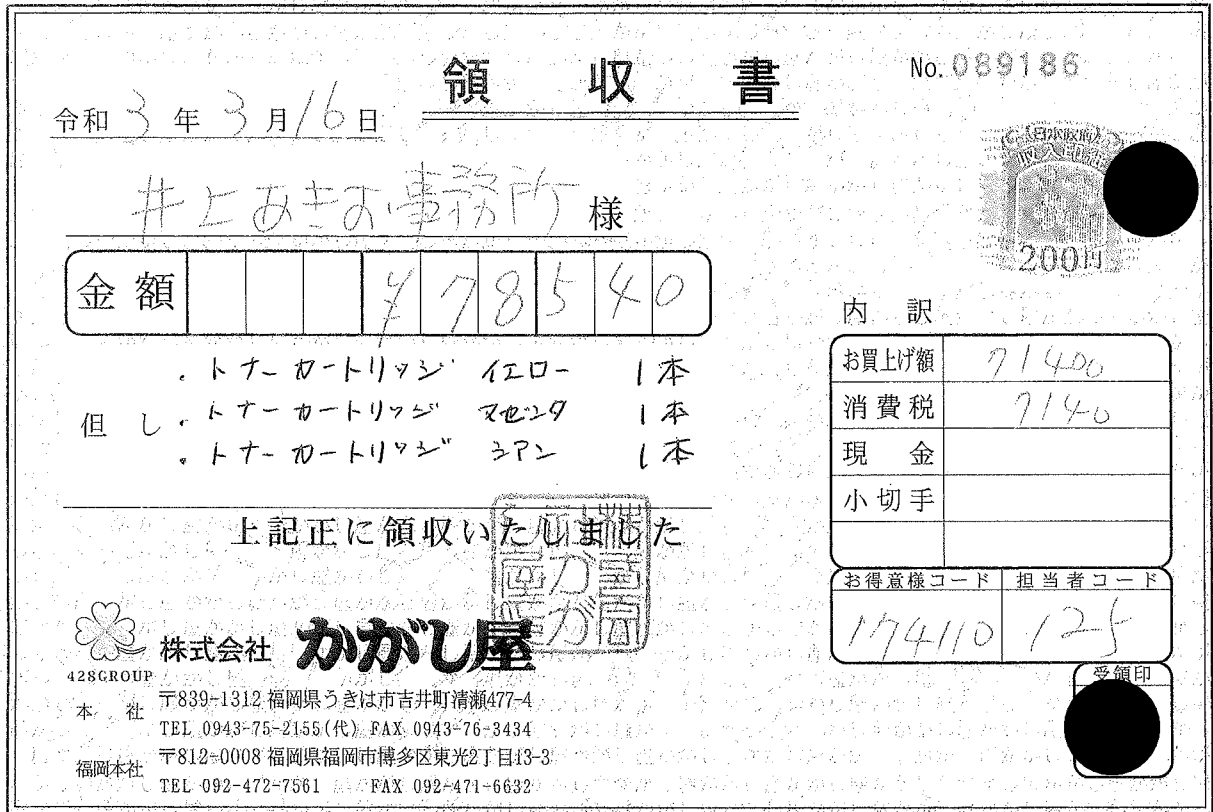 領収書
No. 089186
令和 3 年 3 月 16 日
(日本政府)
収入印紙
200円
井上あきお事務所 様
金額 ¥78540
但し
・トナーカートリッジ イエロー 1本
・トナーカートリッジ マゼンタ 1本
・トナーカートリッジ シアン 1本
上記正に領収いたしました
内訳
お買上げ額 71400
消費税 7140
現金
小切手
お得意様コード 担当者コード
174110 125
受領印
428GROUP
株式会社 かがし屋
本社 〒839-1312 福岡県うきは市吉井町清瀬477-4
TEL 0943-75-2155(代) FAX 0943-76-3434
福岡本社 〒812-0008 福岡県福岡市博多区東光2丁目13-3
TEL 092-472-7561 FAX 092-471-6632